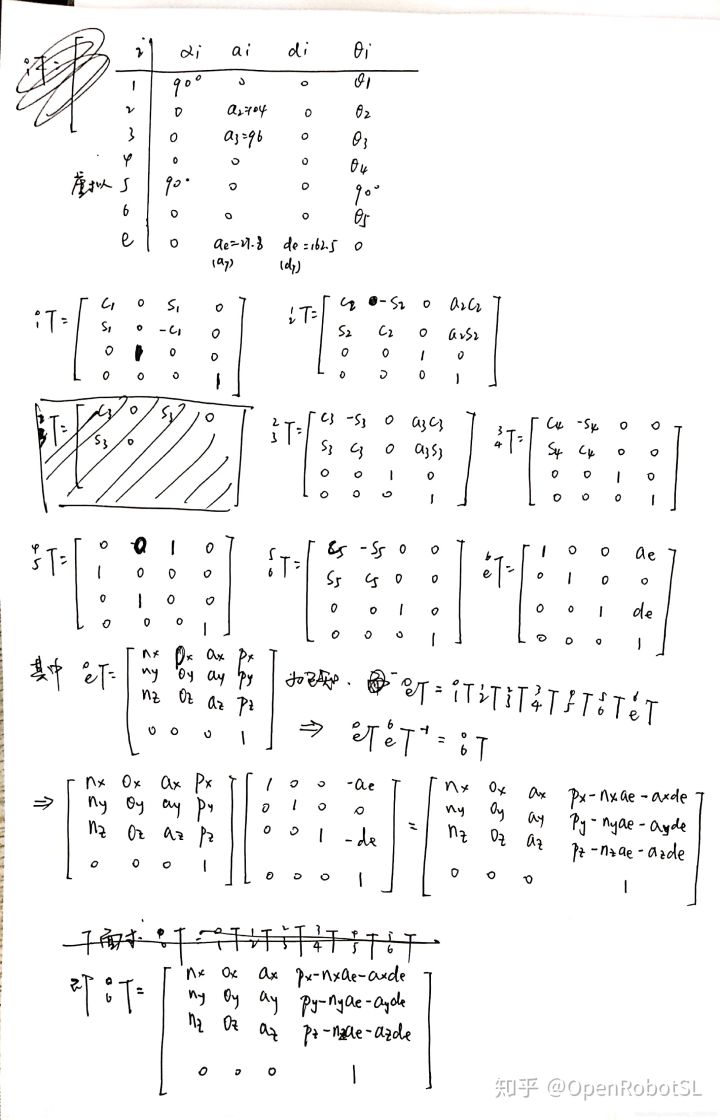 i αi ai di θi
1 90° 0 0 θ1
2 0 a2=104 0 θ2
3 0 a3=96 0 θ3
4 0 0 0 θ4
虚拟 5 90° 0 0 90°
6 0 0 0 θ5
e 0 ae=27.8 (a7) de=162.5 (d7) 0
⁰₁T= [ C1 0 S1 0
S1 0 -C1 0
0 1 0 0
0 0 0 1 ]
¹₂T= [ C2 -S2 0 a2C2
S2 C2 0 a2S2
0 0 1 0
0 0 0 1 ]
T= [ C3 0 S3 0
S3 0
²₃T= [ C3 -S3 0 a3C3
S3 C3 0 a3S3
0 0 1 0
0 0 0 1 ]
³₄T= [ C4 -S4 0 0
S4 C4 0 0
0 0 1 0
0 0 0 1 ]
⁴₅T= [ 0 0 1 0
1 0 0 0
0 1 0 0
0 0 0 1 ]
⁵₆T= [ C5 -S5 0 0
S5 C5 0 0
0 0 1 0
0 0 0 1 ]
⁶ₑT= [ 1 0 0 ae
0 1 0 0
0 0 1 de
0 0 0 1 ]
其中 ⁰ₑT= [ nx ox ax px
ny oy ay py
nz oz az pz
0 0 0 1 ]
⁰ₑT = ⁰₁T ¹₂T ²₃T ³₄T ⁴₅T ⁵₆T ⁶ₑT
⇒ ⁰ₑT ⁶ₑT⁻¹ = ⁰₆T
⇒ [ nx ox ax px
ny oy ay py
nz oz az pz
0 0 0 1 ]
[ 1 0 0 -ae
0 1 0 0
0 0 1 -de
0 0 0 1 ]
= [ nx ox ax px-nxae-axde
ny oy ay py-nyae-ayde
nz oz az pz-nzae-azde
0 0 0 1 ]
下面求 ⁰₆T = ⁰₁T ¹₂T ²₃T ³₄T ⁴₅T ⁵₆T
⁰₆T= [ nx ox ax px-nxae-axde
ny oy ay py-nyae-ayde
nz oz az pz-nzae-azde
0 0 0 1 ]
知乎 @OpenRobotSL